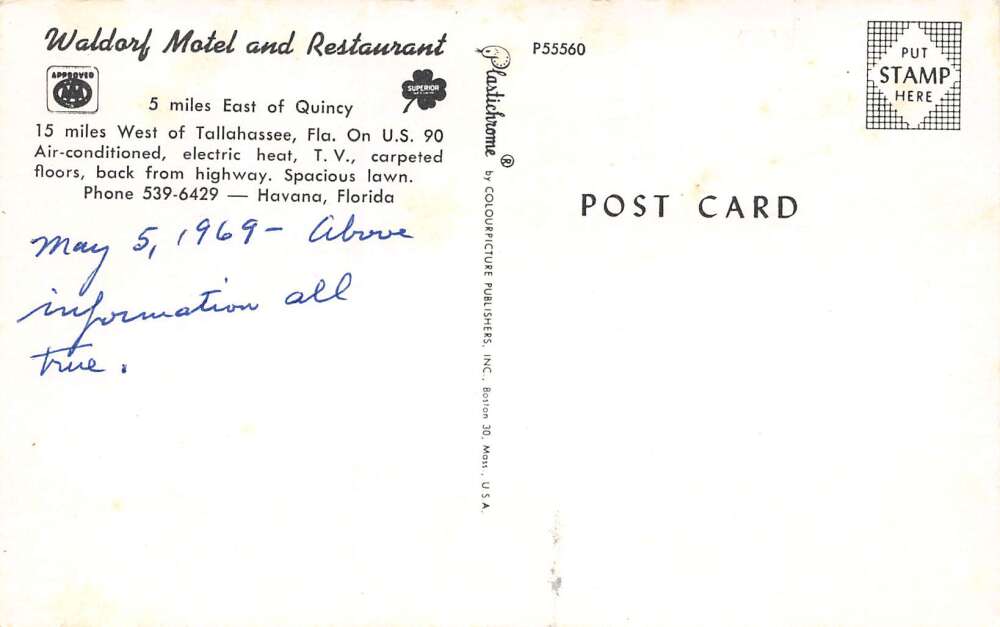 Waldorf Motel and Restaurant
APPROVED
AAA
SUPERIOR
5 miles East of Quincy
15 miles West of Tallahassee, Fla. On U.S. 90
Air-conditioned, electric heat, T. V., carpeted
floors, back from highway. Spacious lawn.
Phone 539-6429 — Havana, Florida
May 5, 1969 - Above
information all
true.
Plastichrome ® by COLOURPICTURE PUBLISHERS, INC., Boston 30, Mass., U.S.A.
P55560
PUT
STAMP
HERE
POST CARD